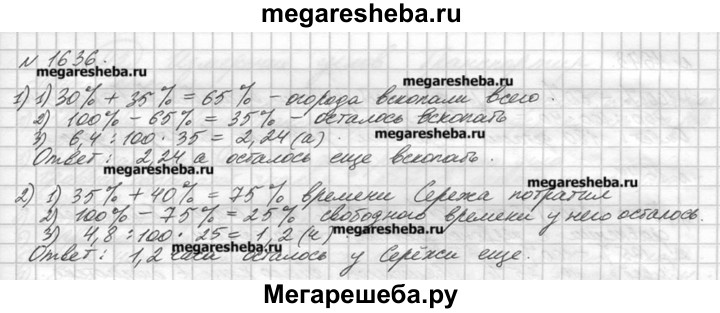 megaresheba.ru
N 1636.
megaresheba.ru
megaresheba.ru
1) 1) 30% + 35% = 65% - огорода вскопали всего.
2) 100% - 65% = 35% - осталось вскопать
3) 6,4 : 100 · 35 = 2,24 (а).
Ответ: 2,24 а осталось еще вскопать.
megaresheba.ru
megaresheba.ru
2) 1) 35% + 40% = 75% времени Сережа потратил
2) 100% - 75% = 25% свободного времени у него осталось.
3) 4,8 : 100 · 25 = 1,2 (ч)
megaresheba.ru
Ответ: 1,2 часа осталось у Серёжи еще.
Мегарешеба.ру